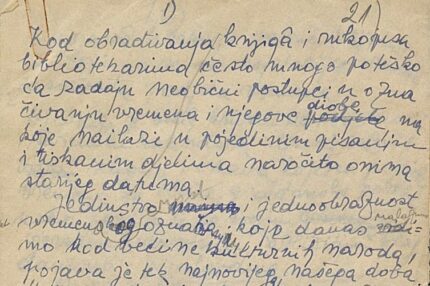 1) 21)
Kod obrađivanja knjigâ i rukopisa
bibliotekarima često mnogo poteško
ća zadaju neobični postupci u ozna
čivanju vremena i njegove diobe, na
koje nailaze u pojedinim pisanim
i tiskanim djelima naročito onima
starijeg datuma.
Jedinstvo i jednoobraznost
vremenskog označivanja, koje danas nalazi-
mo kod većine kulturnih naroda,
pojava je tek najnovijeg našega doba